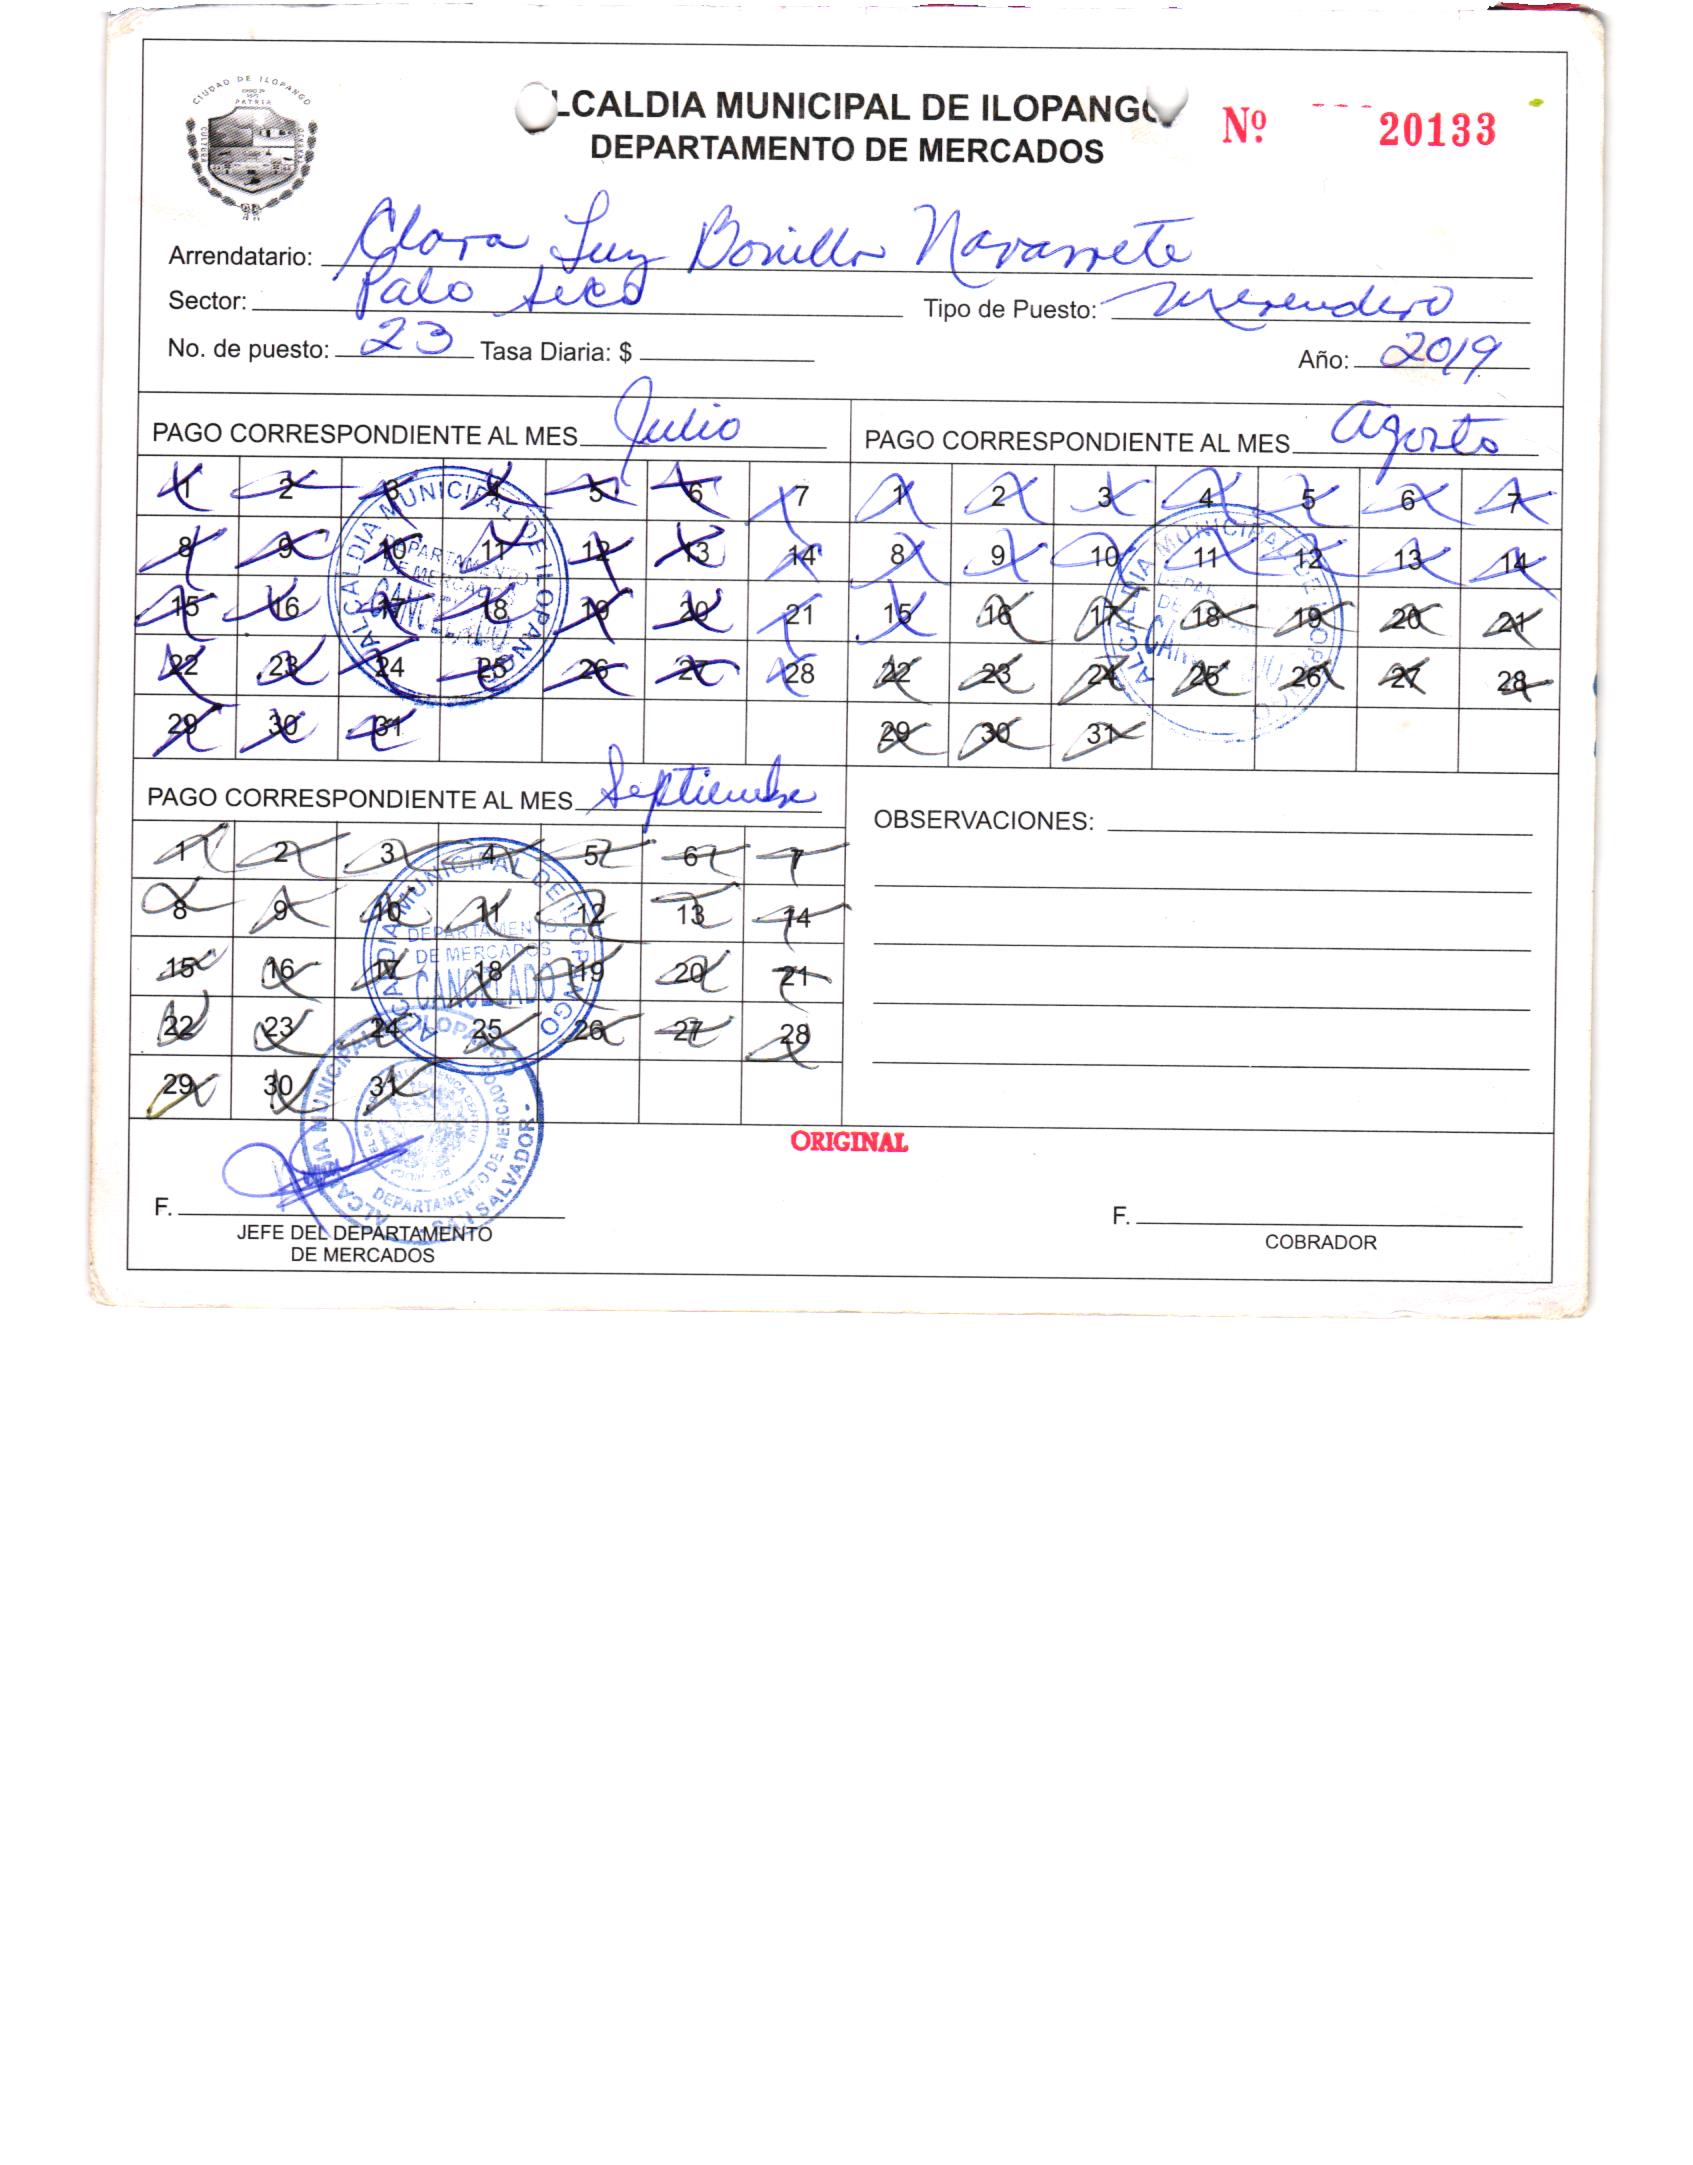 CIUDAD DE ILOPANGO
PATRIA
CULTURA
LCALDIA MUNICIPAL DE ILOPANGO
DEPARTAMENTO DE MERCADOS
Nº 20133
Arrendatario: Clara Luz Bonilla Navarrete
Sector: Palo Seco Tipo de Puesto: Merendero
No. de puesto: 23 Tasa Diaria: $ Año: 2019
PAGO CORRESPONDIENTE AL MES Julio
1 2 3 4 5 6 7
8 9 10 11 12 13 14
15 16 17 18 19 20 21
22 23 24 25 26 27 28
29 30 31
ALCALDIA MUNICIPAL DE ILOPANGO
DEPARTAMENTO
DE MERCADOS
CANCELADO
PAGO CORRESPONDIENTE AL MES Agosto
1 2 3 4 5 6 7
8 9 10 11 12 13 14
15 16 17 18 19 20 21
22 23 24 25 26 27 28
29 30 31
ALCALDIA MUNICIPAL DE ILOPANGO
PAGO CORRESPONDIENTE AL MES Septiembre
1 2 3 4 5 6 7
8 9 10 11 12 13 14
15 16 17 18 19 20 21
22 23 24 25 26 27 28
29 30 31
ALCALDIA MUNICIPAL DE ILOPANGO
DEPARTAMENTO
DE MERCADOS
CANCELADO
OBSERVACIONES:
ORIGINAL
ALCALDIA MUNICIPAL DE ILOPANGO
DEPARTAMENTO DE MERCADOS
SALVADOR
F.
JEFE DEL DEPARTAMENTO
DE MERCADOS
F.
COBRADOR